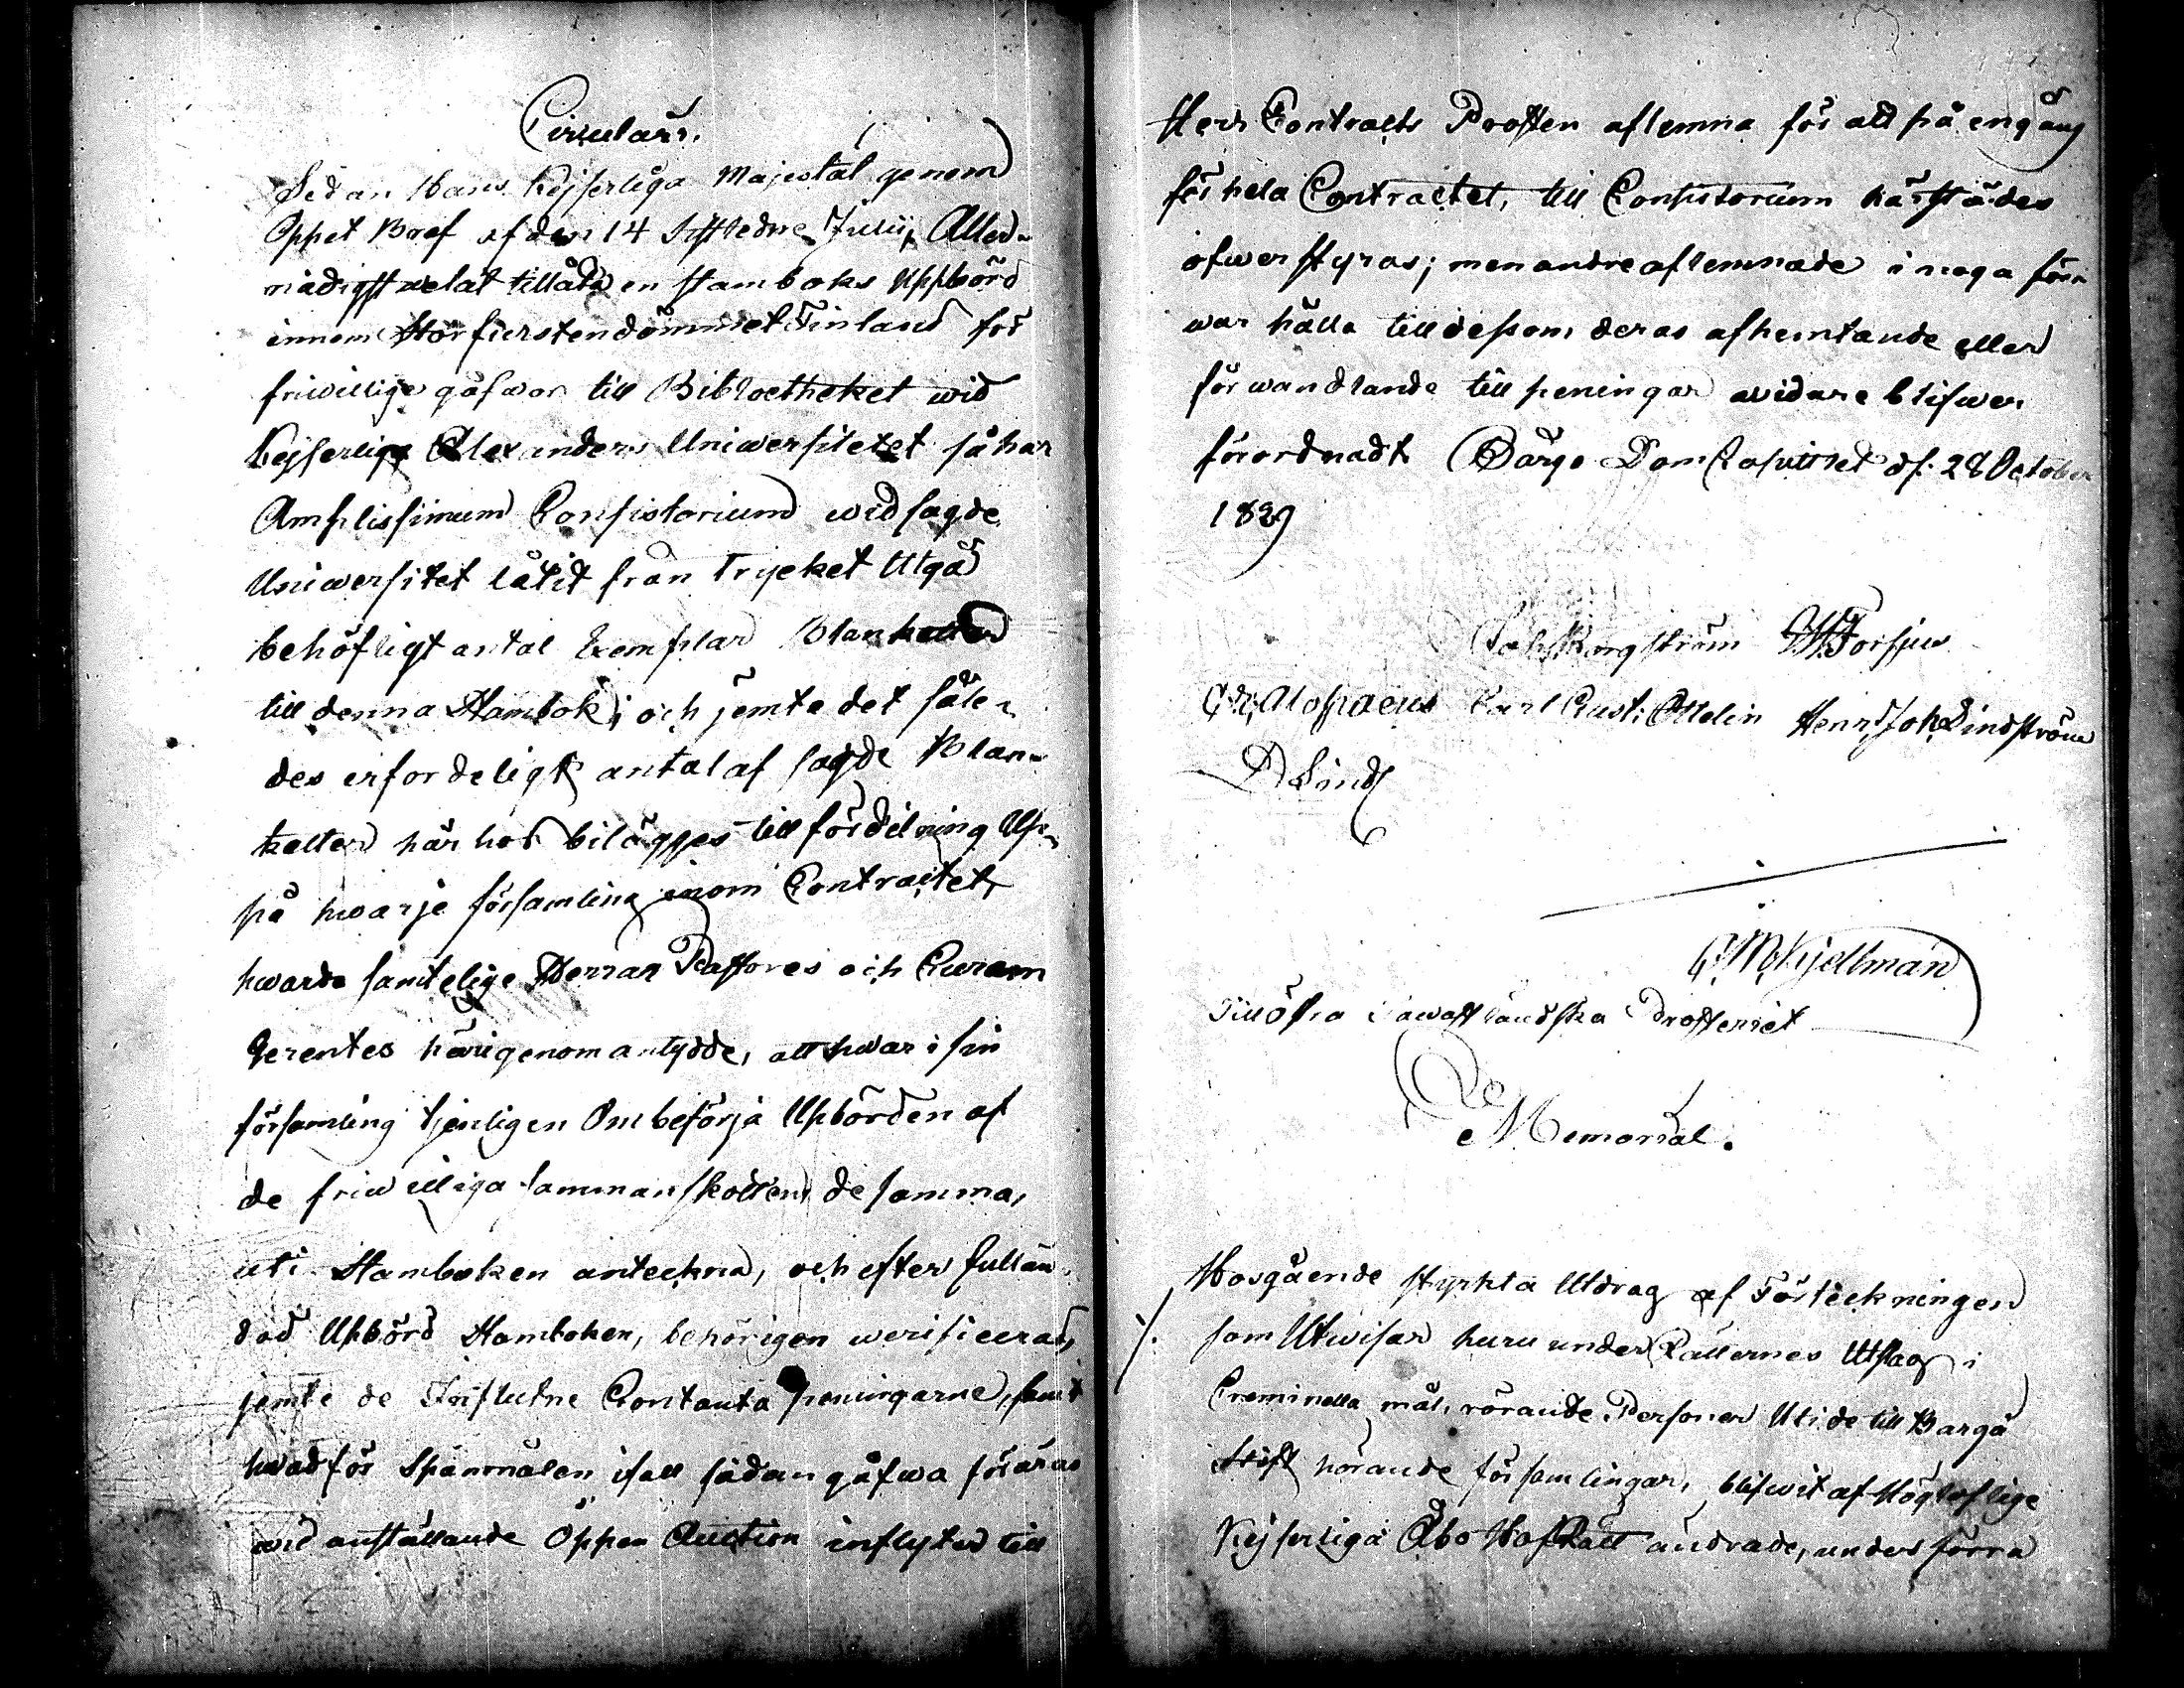 Circulair.
Sedan Hans Kejserliga Majestät genom
Öppet Bref af den 14 sistledne Julii, Aller-
nådigst velat tillåta en stamboks Uppbörd
innom Storfurstendömmet Finland för
friwillige gåfwor till Bibliotheket wid
Kejserliga Alexanders Uniwersitetet så har
Amplissimum Consistorium wid sagde
Uniwersitet låtit från Trycket Utgå
behöfligt antal Exemplar Blanketter
till denna Stambok; och jemte det såle-
des erforderligt antal af sagde Blan-
ketter här hos bilägges till fördelning Up-
på hwarje församling inom Contractet,
hwarda samtelige Herrar Pastores och Curam
Gerentes härigenom antydde, att hwar i sin
församling tjenligen Ombesörja Upbörden af
de friwilliga sammanskotten desamma,
uti Stamboken anteckna, och efter fullän-
dad Upbörd Stamboken, behörigen werificerad,
jemte de Influtne Contanta peningarne, samt
hwad för Spanmålen ifall sådan gåfwa föräras
wid anställande Öppen Auction inflyter till
Herr Contracts Prosten aflemna för att på engång
för hela Contractet, till Consistorium härstädes
öfwerstyras; men andre aflemnade i noga för-
war hålla till dess om deras afhemtande eller
förwandlande till peningar widare blifwer
förordnadt Bårgo DomCapittlet d. 28 October
1829
Joh Borgström GWForsjus
Alopaeus Carl Gust: Ottelin Henr Joh Lindström
D Lind
G M Kjellman
Till Öfra Tawastländska Prosteriet
Memorial.
Hosgående styrkta Utdrag af Förteckningen
./. som Utwisar huru under Rätternes Utslag i
Criminella mål, rörande Personer Uti de till Bargå
Stift hörande församlingar, blifwit af Högloflige
Kejserliga Åbo HofRätt ändrade, under förra